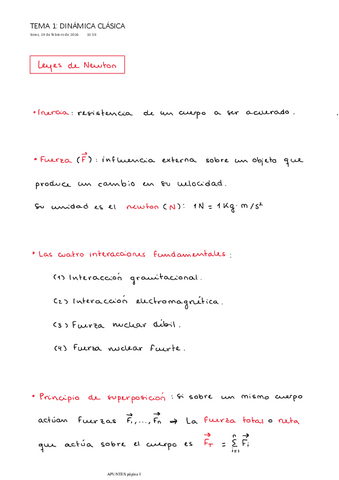 TEMA 1: DINÁMICA CLÁSICA
Leyes de Newton
• Inercia : resistencia de un cuerpo a ser acelerado .
• Fuerza (F⃗) : influencia externa sobre un objeto que
produce un cambio en su velocidad.
Su unidad es el newton (N) : 1N = 1Kg · m/s²
• Las cuatro interacciones fundamentales :
(1) Interacción gravitacional.
(2) Interacción electromagnética.
(3) Fuerza nuclear débil .
(4) Fuerza nuclear fuerte .
• Principio de superposición : Si sobre un mismo cuerpo
actúan fuerzas F⃗₁,...,F⃗ₙ → La fuerza total o neta
que actúa sobre el cuerpo es F⃗_T = Σⁿᵢ₌₁ F⃗ᵢ
APUNTES página 1